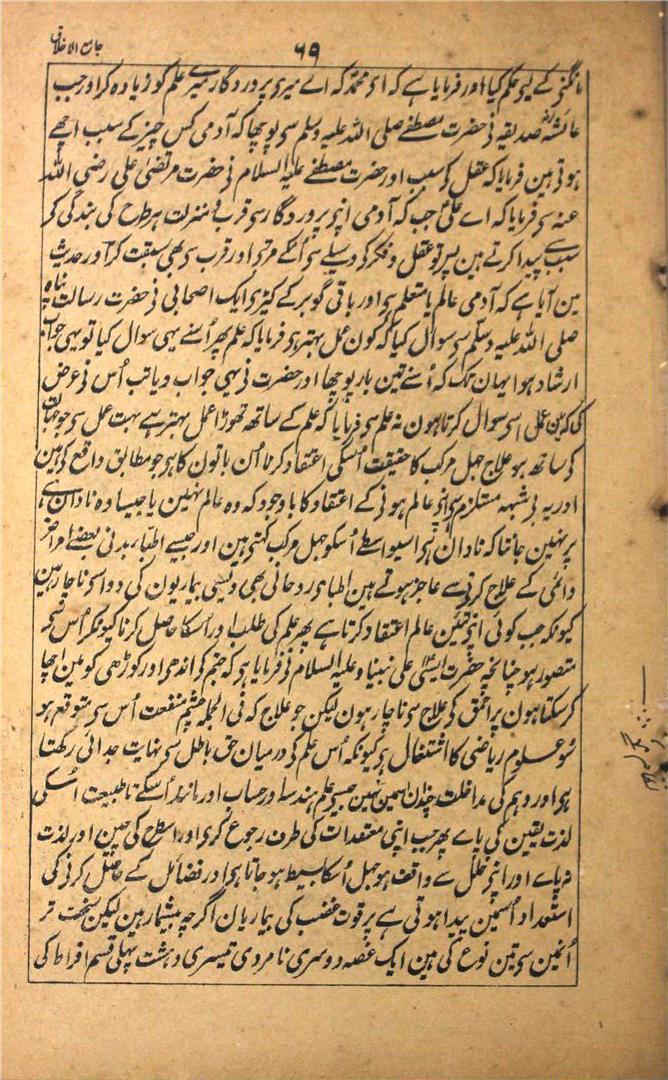 جامع الاخلاق
۶۹
مانگنی کے لیی حکم کیا اور فرمایا ہے کہ ای محمد کہ اے میری پروردگار میرے علم کو زیادہ کر اور جب
عائشہ صدیقہ نی حضرت مصطفے صلی اللہ علیہ وسلم سی پوچھا کہ آدمی کس چیز کے سبب اچھے
ہوتی ہین فرمایا کہ عقل کی سبب اور حضرت مصطفے علیہ السلام نی حضرت مرتضیٰ علی رضی اللہ
عنہ سی فرمایا کہ اے علی جب کہ آدمی اپنی پروردگار سی قرب و منزلت ہر طرح کی بندگی کی
سبب سے پیدا کرتے ہین پس تو عقل و فکر کی وسیلے سی اُنکے مرتبی اور قرب سی بھی سبقت کر اور حدیث
مین آیا ہے کہ آدمی عالم یا متعلم ہی اور باقی گوبر کے کیڑی ایک اصحابی نی حضرت رسالت پناہ
صلی اللہ علیہ وسلم سی سوال کیا کہ کون عمل بہتر ہی فرمایا کہ علم پھر اُسنے یہی سوال کیا تو یہی جواب
ارشاد ہوا یہان تک کہ اُسنے تین بار پوچھا اور حضرت نی یہی جواب دیا تب اُس نی عرض
کی کہ مین عمل سی سوال کرتا ہون نہ علم سی فرمایا کہ علم کے ساتھ تھوڑا عمل بہتر ہے بہت عمل سی جو جہالت
کی ساتھ ہو علاج جہل مرکب کا حقیقت اُسکی اعتقاد کرنا اُن باتون کا ہی جو مطابق واقع کی نہین
اور یہ بی شبہہ مستلزم ہی اپنی عالم ہونی کے اعتقاد کا باوجود کہ وہ عالم نہین یا جیسا وہ نادان ہے
پر نہین جانتا کہ نادان ہی اسیواسطے اُسکو جہل مرکب کہتی ہین اور جیسے اطبا بدنی بعضے امراض
دائمی کے علاج کرنی سے عاجز ہوتے ہین اطبای روحانی بھی ویسی بیماریون کی دوا سی ناچار ہین
کیونکہ جب کوئی اپنی تئین عالم اعتقاد کرتا ہے پھر علم کی طلب اور اُسکا حاصل کرنا کیونکر اُس سے
متصور ہو چنانچہ حضرت عیسیٰ علی نبینا و علیہ السلام نی فرمایا ہی کہ جنم کی اندھی اور کوڑھی کو مین اچھا
کر سکتا ہون پر احمق کی علاج سی ناچار ہون لیکن جو علاج کہ فی الجملہ چشم منفعت اُس سی متوقع ہو
سو علوم ریاضی کا اشتغال ہی کیونکہ اُس علم کی درمیان حق باطل سی نہایت جدائی رکھتا
ہی اور وہم کی مداخلت چندان اسمین نہین جیسی علم ہندسہ اور حساب اور مانند اُسکے تا طبیعت اُسکی
لذت یقین کی پاے پھر جب اپنی معتقدات کی طرف رجوع کری اور اسطرح کی چین اور لذت
نہ پاے اور اپنی خلل سے واقف ہو جہل اُسکا بسیط ہو جاتا ہی اور فضائل کے حاصل کرنی کی
استعداد اُسمین پیدا ہوتی ہے پر قوت غضب کی بیماریان اگرچہ بیشمار ہین لیکن سخت تر
اُنہین سی تین نوع کی ہین ایک غصہ دوسری نامردی تیسری دہشت پہلی قسم افراط کی